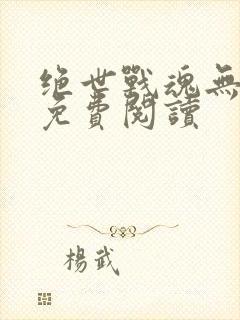 絕世戰魂無
免費閱讀
楊武